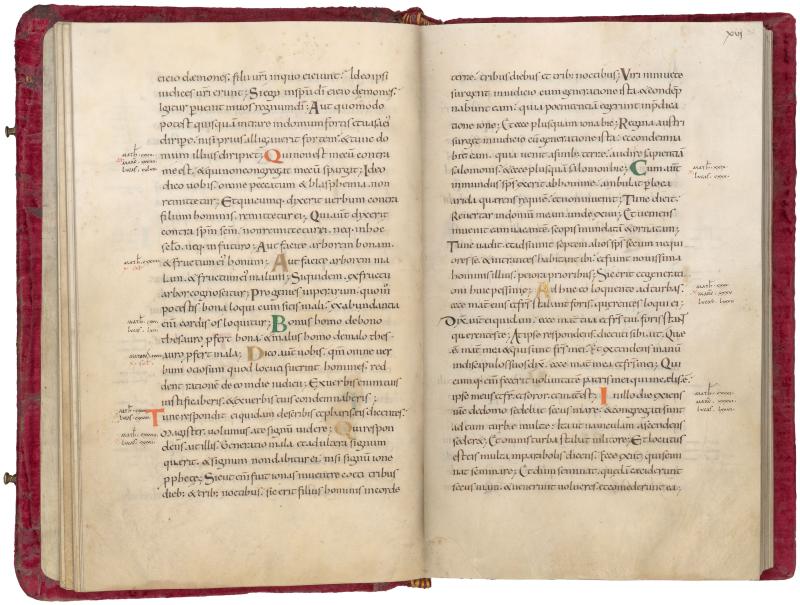 cicio dæmones. filii uri inquo eiciunt. Ideo ipsi
iudices uri erunt; Siego inspu di eicio demones.
Igitur puenit inuos regnum di; Aut quomodo
potest quisquā intrare indomum fortis et uasa ei
diripe. nisi prius alligauerit fortem. & tunc do
mum illius diripiet; Qui non est mecū contra
me est. & qui non congregat mecū spargit; Ideo
dico uobis. omne peccatum & blasphemia. non
remittetur; Et quicumq; dixerit uerbum contra
filium hominis. remittetur ei; Qui aut dixerit
contra spm scm. non remittetur ei. neq; in hoc
sclo. neq; in futuro; Aut facite arborem bonam.
& fructum ei bonum; Aut facite arborem ma
lam. & fructum ei malum; Siquidem. ex fructu
arbor cognoscitur; Progenies uiperarum. quom
potestis bona loqui cum sitis mali. ex abundantia
eni cordis os loquitur; Bonus homo de bono
thesauro pfert bona. & malus homo de malo thes
auro pfert mala; Dico aut uobis. qm omne uer
bum ociosum quod locuti fuerint homines. red
dent rationē de eo in die iudicii; Ex uerbis enim tuis
iustificaberis. & ex uerbis tuis condemnaberis;
Tunc respondit ei quidam de scribis et pharisęis dicentes.
Magister. uolumus a te signū uidere; Qui respon
dens. ait illis. Generatio mala. et adultera signum
querit. & signum non dabitur ei. nisi signū ionę
pphetę; Sicut eni fuit ionas in uentre coeti tribus
dieb; & trib; noctibus. sic erit filius hominis in corde
XVI
terrę. tribus diebus et tribus noctibus; Viri niniuetę
surgent in iudicio cum generatione ista. & condēp
nabunt eam. quia poenitentiā egerunt in prędica
tione ionę; Et ecce plus quam iona hic; Regina austri
surget in iudicio cū generatione ista. et condemna
bit eam. quia uenit a finib; terrę. audire sapientiā
salomonis. & ecce plus quā salomon hic; Cum aut
inmundus sps exierit ab homine. ambulat p loca
arida querens requiē. et non inuenit; Tunc dicit.
Reuertar in domū meam. unde exiui; Et ueniens
inuenit eam uacantē. scopis mundatā & ornatam;
Tunc uadit. et adsumit septem alios sps secum nequi
ores se. & intrantes habitant ibi. et fiunt nouissima
hominis illius. peiora prioribus; Sic erit et generati
oni huic pessimę; Adhuc eo loquente ad turbas.
ecce mat ei et frs stabant foris. querentes loqui ei;
Dix aut ei quidam. ecce mat tua et frs tui foris stant
querentes te; At ipse respondens. dicenti sibi ait. Quę
ē mat mea. & qui sunt frs mei; Et extendens manū
in discipulos suos dix. ecce mat mea et frs mei; Qui
cumq; eni fecerit uoluntatē patris mei qui in cęlis ē.
ipse meus et frat et soror. et mat est; In illo die exiens
iħs de domo sedebat secus mare. & congregatę sunt
ad eum turbę multę. Ita ut in nauiculam ascendens
sederet; Et omnis turba stabat in litore; Et locutus
est eis multa in parabolis dicens. Ecce exiit qui semi
nat seminare; Et dum seminat. quędā ceciderunt
secus uiam. & uenerunt uolucres. et comederunt ea;